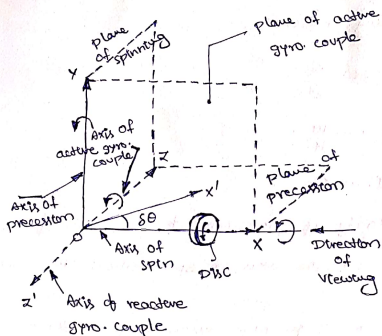 plane of
spinning
plane of active
gyro. couple
Y
Axis of
active gyro.
couple
Z
plane of
precession
Axis of
precession
X'
δθ
O
Axis of
spin
Disc
X
Direction
of
Viewing
Z'
Axis of reactive
gyro. couple